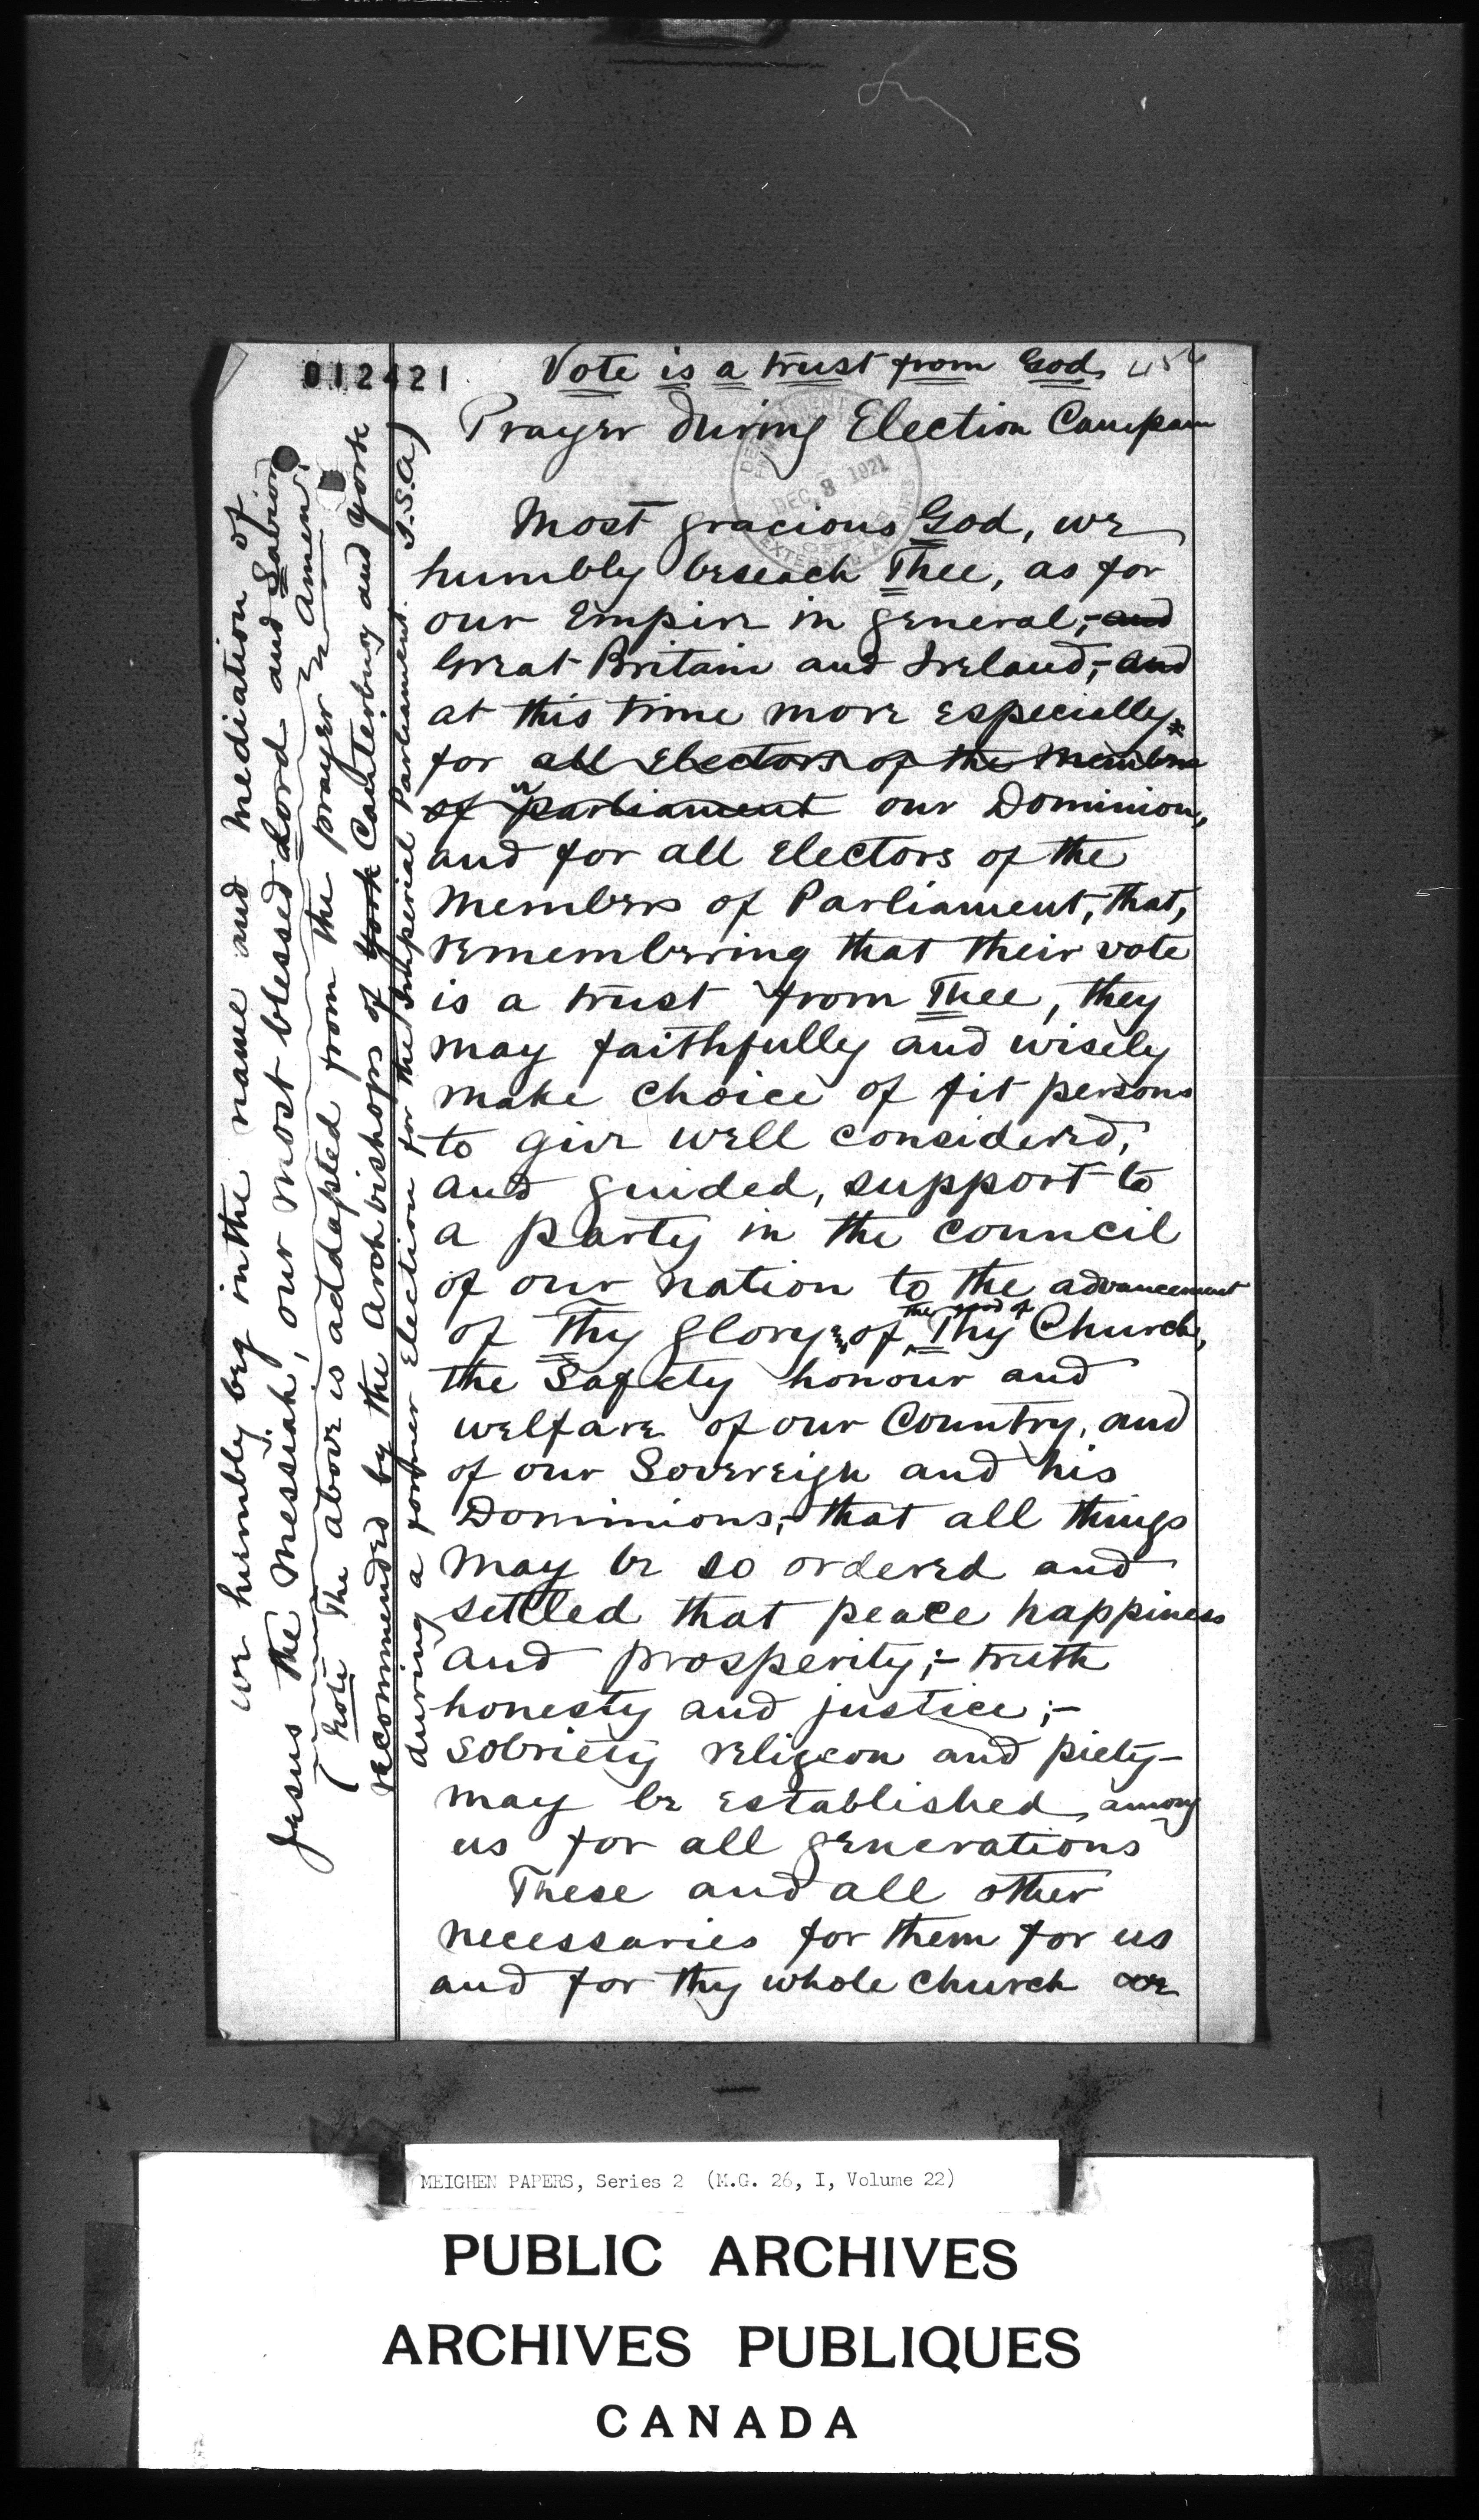 012421
Vote is a trust from God.
Prayer during Election Campain
DEC 8 1921
Most gracious God, we
humbly beseach Thee, as for
our Empire in general;- and
Great Britain and Ireland;- and
at this time more especially
for all Electors of the Members
of parliament our Dominion,
and for all Electors of the
Members of Parliament; that,
remembering that their vote
is a trust from Thee, they
may faithfully and wisely
make choice of fit persons
to give well considered,
and guided, support to
a party in the council
of our nation to the advancement
of Thy Glory & of the good of Thy Church,
the Safety honour and
welfare of our Country, and
of our Sovereign and his
Dominions;- that all things
may be so ordered and
settled that peace happiness
and prosperity;- truth
honesty and justice;-
sobriety religeon and piety-
may be established among
us for all generations
These and all other
necessaries for them for us
and for thy whole church we
we humbly beg in the name and mediation of
Jesus the Messiah, our most blessed Lord and Saviour
Amen.
(Note The above is addapted from the prayer
recommended by the Archbishops of York Canterbury and York
during a former Election for the Imperial Parliament. I.S.A)
MEIGHEN PAPERS, Series 2 (M.G. 26, I, Volume 22)
PUBLIC ARCHIVES
ARCHIVES PUBLIQUES
CANADA